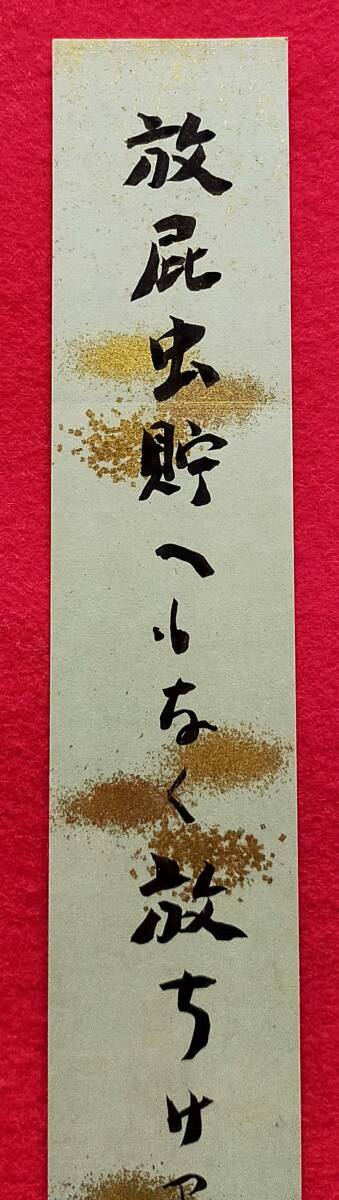 放屁虫貯へもなく放ちけ